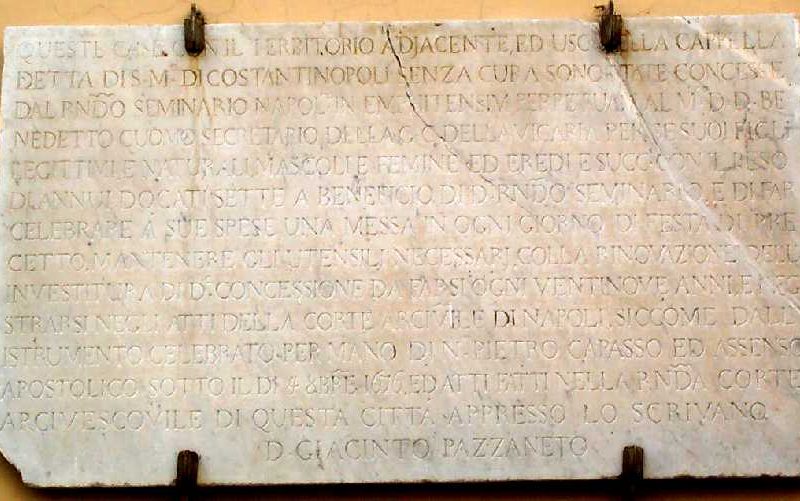 QUESTE CASE CON IL TERRITORIO ADJACENTE, ED USO DELLA CAPPELLA
DETTA DI S. M. DI COSTANTINOPOLI SENZA CURA SONO STATE CONCESSE
DAL RNDO SEMINARIO NAPOL IN EMPHITENSIM PERPETUAM AL M. D. D. BE
NEDETTO CUOMO SECRETARIO DELLA G. C. DELLA VICARIA PER SE SUOI FIGLI
LEGITTIMI E NATURALI MASCOLI E FEMINE ED EREDI E SUCC CON IL PESO
DI ANNUI DOCATI SETTE A BENEFICIO DI D. RNDO SEMINARIO, E DI FAR
CELEBRARE A SUE SPESE UNA MESSA IN OGNI GIORNO DI FESTA DI PRE
CETTO, MANTENERE GLI UTENSILI NECESSARI COLLA RINOVAZIONE DELL
INVESTITURA DI D. CONCESSIONE DA FARSI OGNI VENTINOVE ANNI E REGI
STRARSI NEGLI ATTI DELLA CORTE ARCIVILE DI NAPOLI, SICCOME DALL
ISTRUMENTO CELEBRATO PER MANO DI N. PIETRO CAPASSO ED ASSENSO
APOSTOLICO SOTTO IL DI 4 8BRE 1676, ED ATTI FATTI NELLA RNDA CORTE
ARCIVESCOVILE DI QUESTA CITTA APPRESSO LO SCRIVANO
D. GIACINTO PAZZANETO